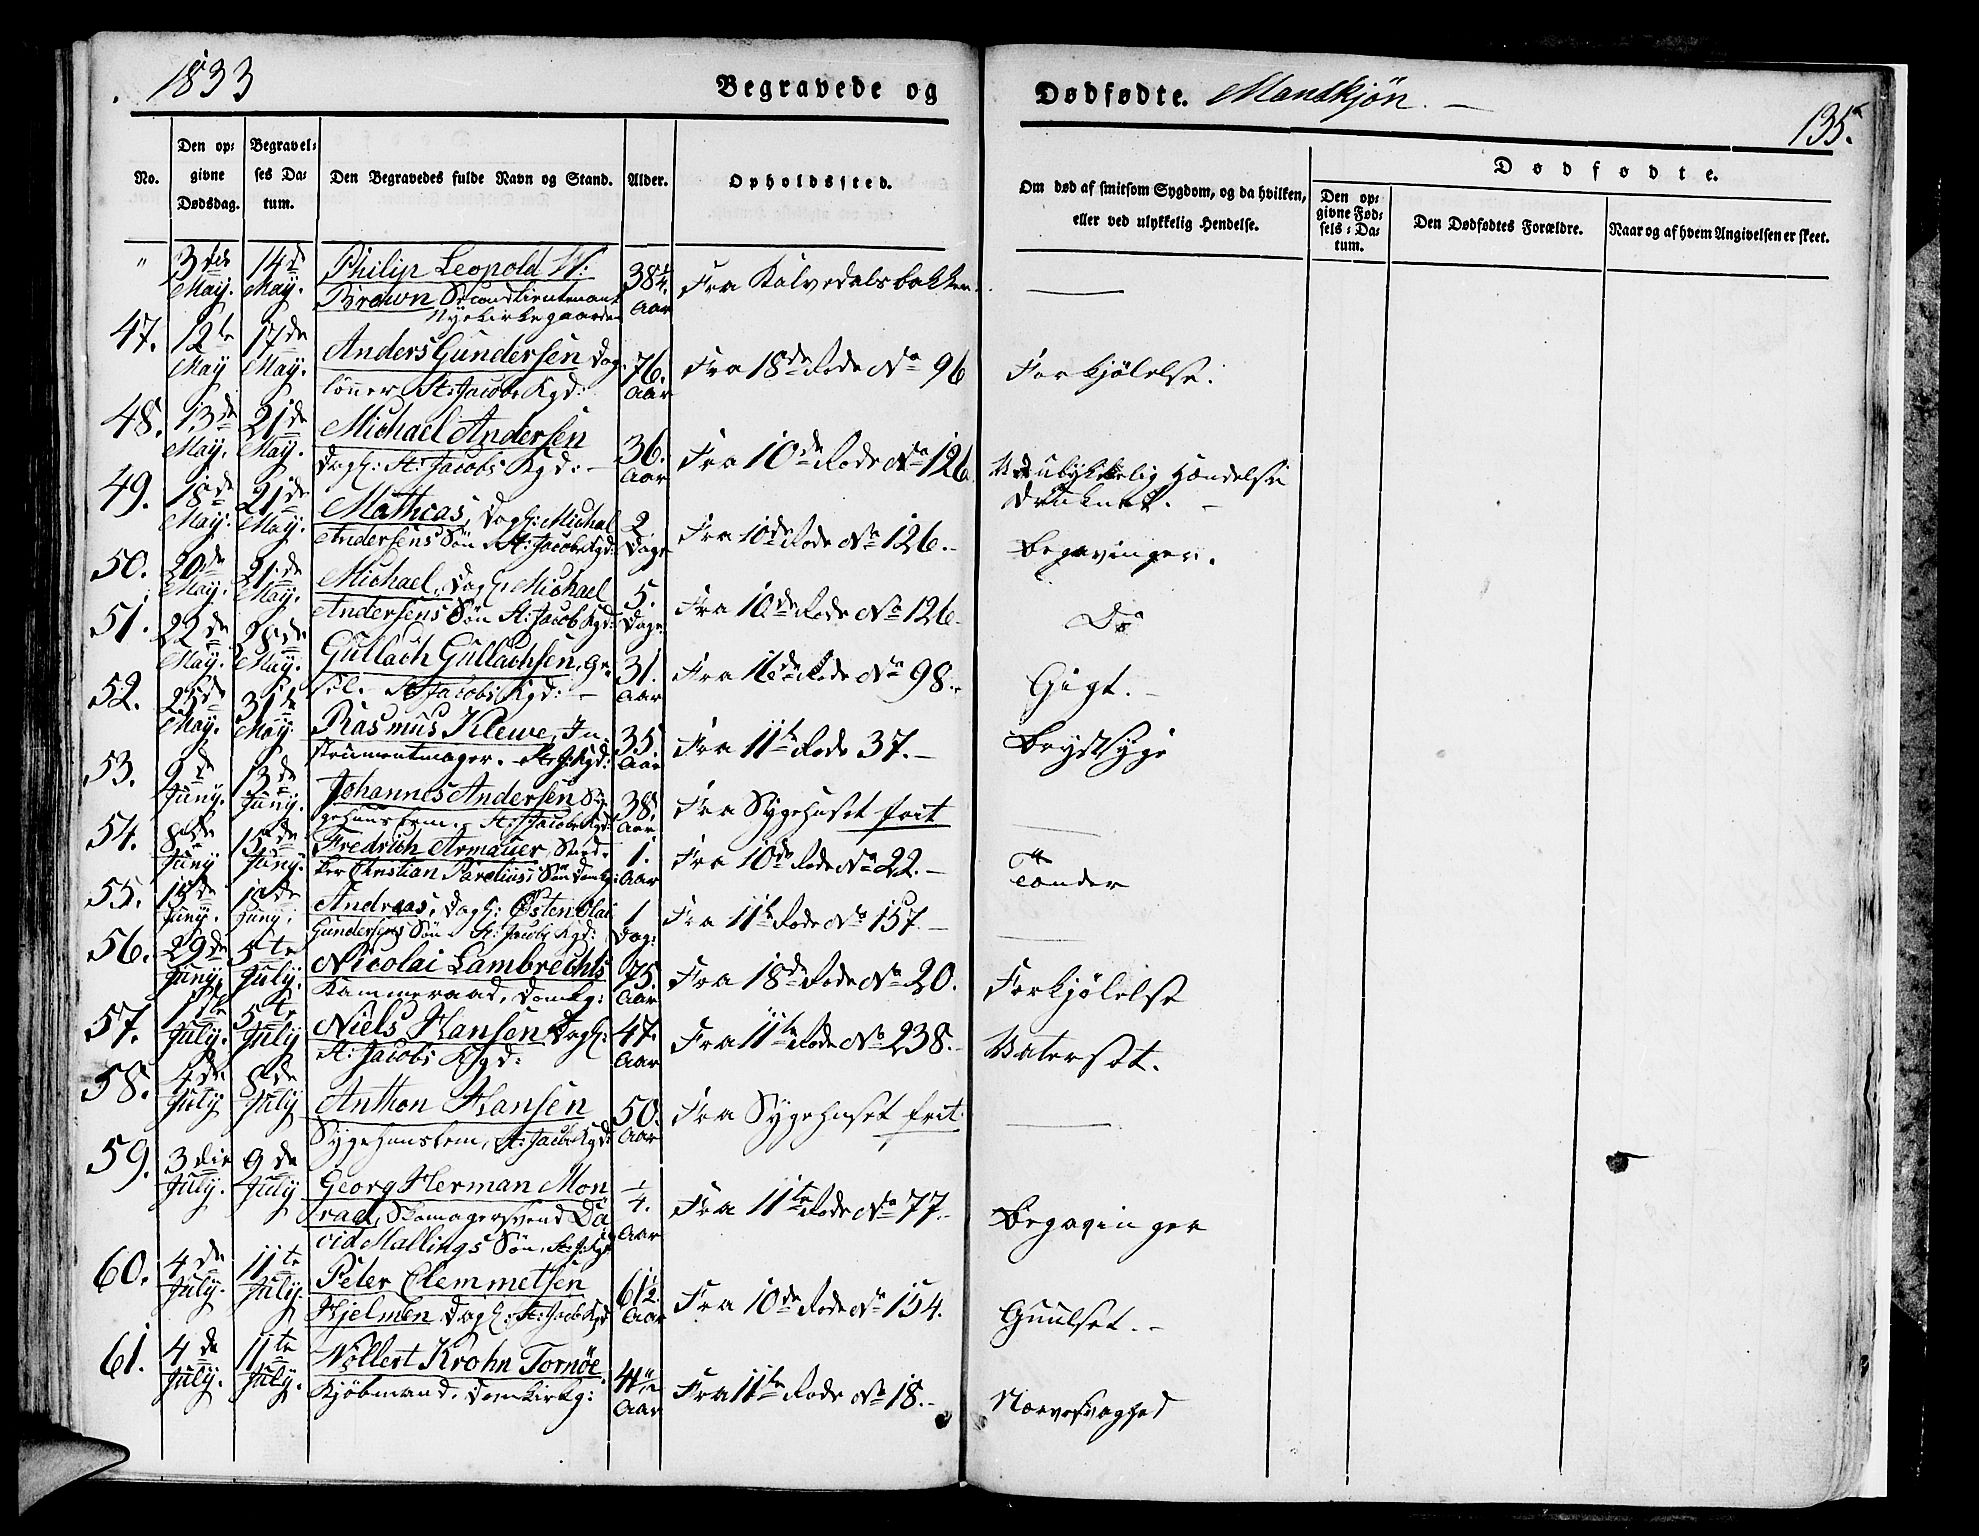 1833
Begravede og
Dødfødte. Mandkjøn. –
135.
No.
Den opgivne Dødsdag.
Begravelses Datum.
Den Begravedes fulde Navn og Stand.
Alder.
Opholdssted.
Om død af smitsom Sygdom, og da hvilken,
eller ved ulykkelig Hendelse.
Dødfødte.
Den opgivne Fødsels-Datum.
Den Dødfødtes Forældre.
Naar og af hvem Angivelsen er skeet.
" 3die May. 14de May. Philip Leopold W: 38 1/4 Aar Fra Kalvedalsbakken.
Brown Secondlieutenant
Nyekirkegaarden
47. 12te May 17de May. Anders Gundersen Dag- 76. Aar Fra 18de Rode No 96 Forkjølelse.
lønner St: Jacobs Kgd:
48. 13de May. 21de May. Michael Andersen 36. Aar Fra 10de Rode No 126 Ved ulykkelig Hændelse
Dagl: St: Jacobs Kgd: – Druknet. –
49. 18de May. 21de May. Mathias, Dagl: Michal 2 Dage Fra 10de Rode No 126. – Begavinger.
Andersens Søn St: Jacobs Kgd:
50. 20de May. 21de May. Michael, Dagl: Michael 5. Dage Fra 10de Rode No 126. Do
Andersens Søn St: Jacob Kgd:
51. 22de May. 28de May. Gullach Gullachsen, Ge- 31. Aar Fra 16de Rode No 98. – Gigt. –
sel. St Jacobs Kgd: –
52. 25de May. 31te May. Rasmus Klewe, In- 35. Aar Fra 11te Rode 37. – Brystsyge
strumentmager. St: J: Kgd:
53. 9de Juny. 13de Juny. Johannes Andersen Sy- 38. Aar Fra Sygehuset frit
gehuuslem. St: Jacobs Kgd:
54. 8de Juny 15de Juny. Fredrich Armauer, 1. Aar Fra 10de Rode No 22. – Tænder
Christian Parelius, Søn Domkg:
55. 15de Juny. 18de Juny. Andreas, Dagl: Østen Olai 1 Dag: Fra 11te Rode No 157. –
Gundersens Søn St: Jacobs Kgd:
56. 29de Juny. 5te July. Nicolai Lambrechts 75. Aar Fra 18de Rode No 20. Forkjølelse
Kammeraad, Domkg:
57. 1ste July. 5te July Niels Hansen Dagl: 47. Aar Fra 11te Rode No 238. – Vatersot.
St: Jacobs Kgd:
58. 4de July 8de July Anthon Hansen 50. Aar Fra Sygehuset frit.
Sygehuuslem, St: Jacobs Kgd:
59. 3die July. 9de July Georg Herman Mon 1/4. Aar Fra 11te Rode No 77. – Begavinger
rad, Skomagersvend Da
vid Mallings Søn, St: J: Kgd
60. 4de July. 11te July. Peter Clemmetsen 61 1/2. Aar Fra 10de Rode No 154. Guulsot. –
Hjelmen Dagl: St: Jacb Kgd
61. 4de July. 11te July. Wollert Krohn Tornöe Aar Fra 11te Rode No 18. – Nervesvaghed
Kjøbmand. Domkirkg: